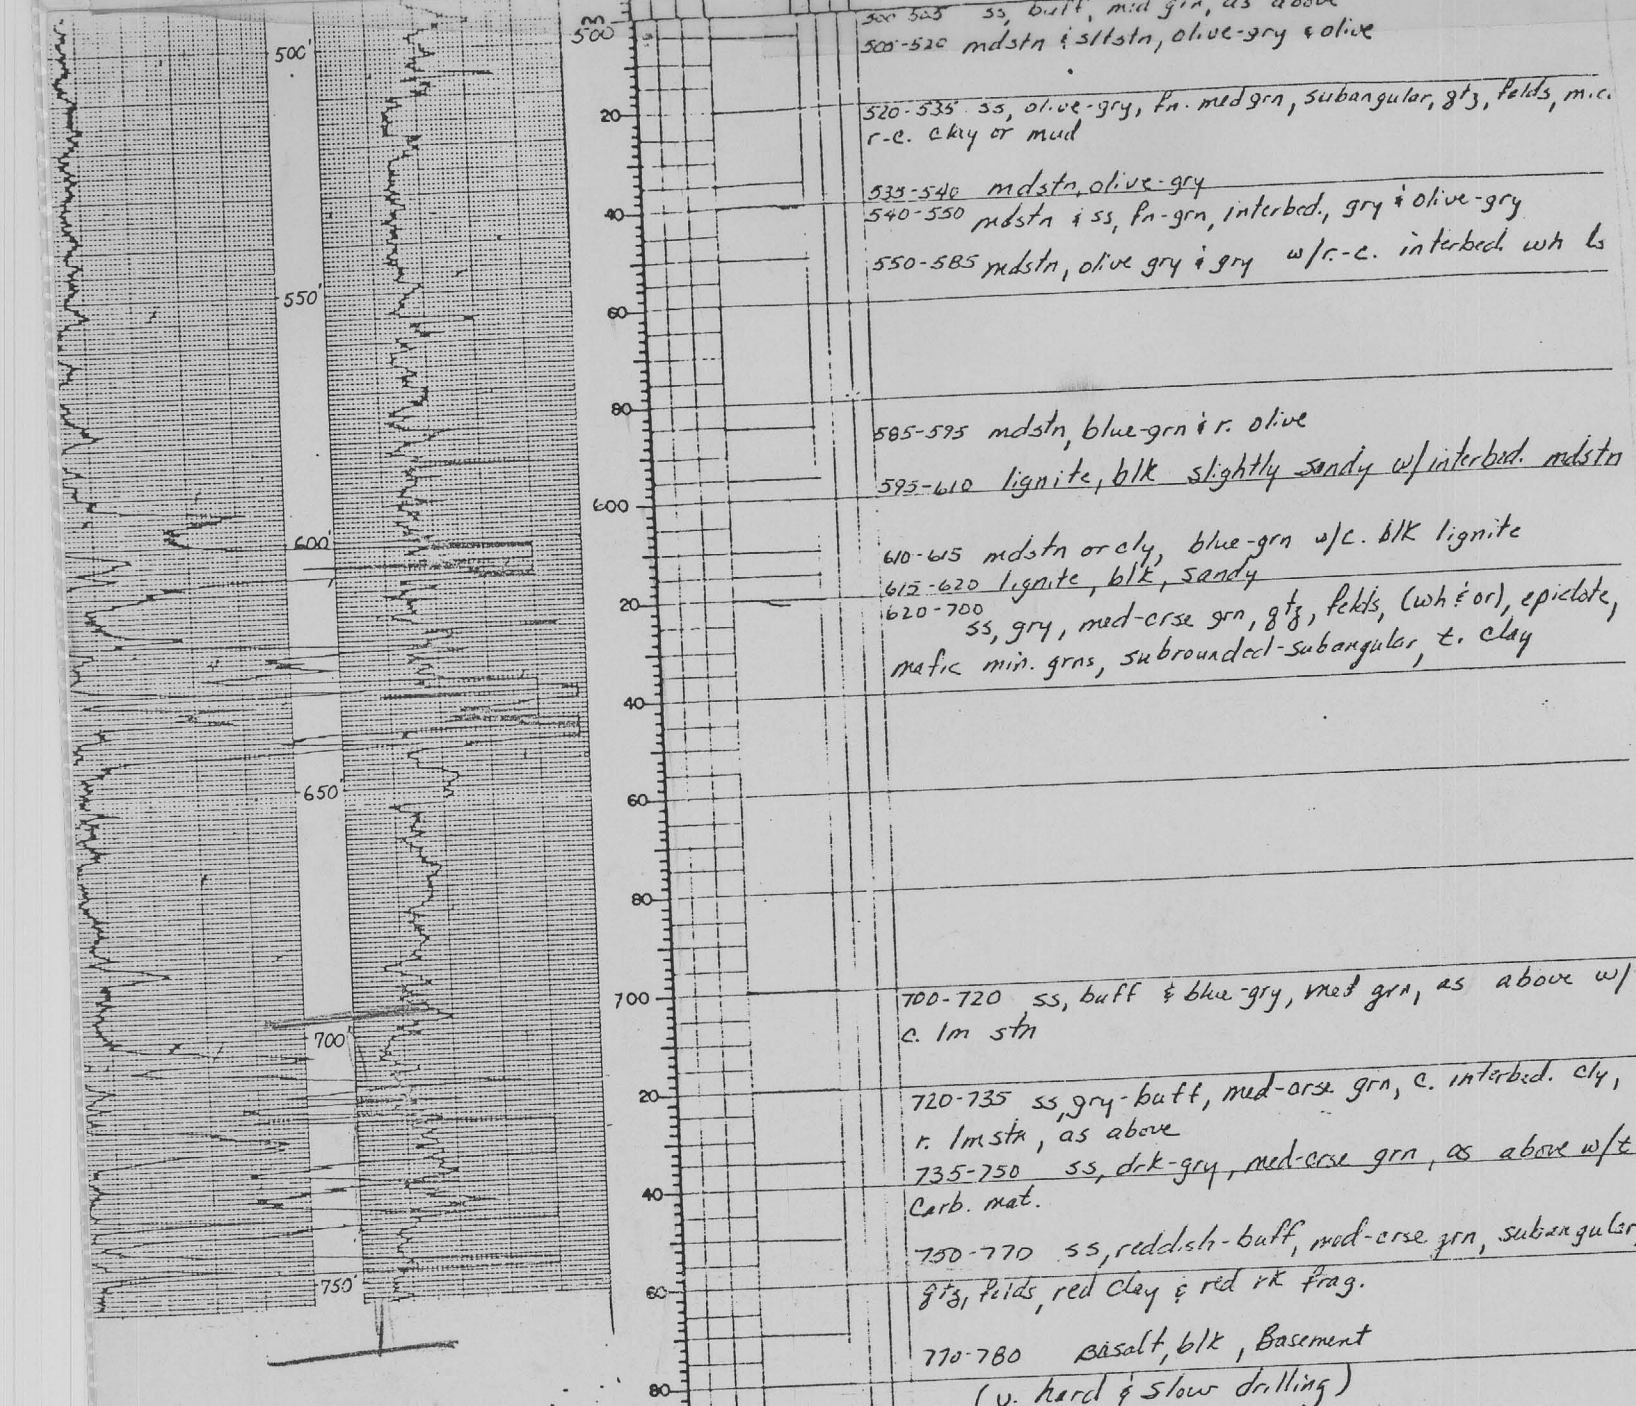 500-505 ss, buff, med grn, as above
505-520 mdstn & sltstn, olive-gry & olive
520-535 ss, olive-gry, fn. medgrn, subangular, qtz, felds, mic.
r-c. clay or mud
535-540 mdstn, olive-gry
540-550 mdstn & ss, fn-grn, interbed., gry & olive-gry
550-585 mdstn, olive gry & gry w/r.-c. interbed. wh ls
585-595 mdstn, blue-grn & r. olive
595-610 lignite, blk slightly sandy w/interbed. mdstn
610-615 mdstn or cly, blue-grn w/c. blk lignite
615-620 lignite, blk, sandy
620-700
ss, gry, med-crse grn, qtz, felds, (wh & or), epidote,
mafic min. grns, subrounded-subangular, t. clay
700-720 ss, buff & blue-gry, med grn, as above w/
c. lm stn
720-735 ss, gry-buff, med-crse grn, c. interbed. cly,
r. lmstn, as above
735-750 ss, drk-gry, med-crse grn, as above w/t
Carb. mat.
750-770 ss, reddish-buff, med-crse grn, subangular,
qtz, felds, red clay & red rk frag.
770-780 Basalt, blk, Basement
(v. hard & slow drilling)
500'
550'
600'
650'
700'
750'
500
20
40
60
80
600
20
40
60
80
700
20
40
60
80